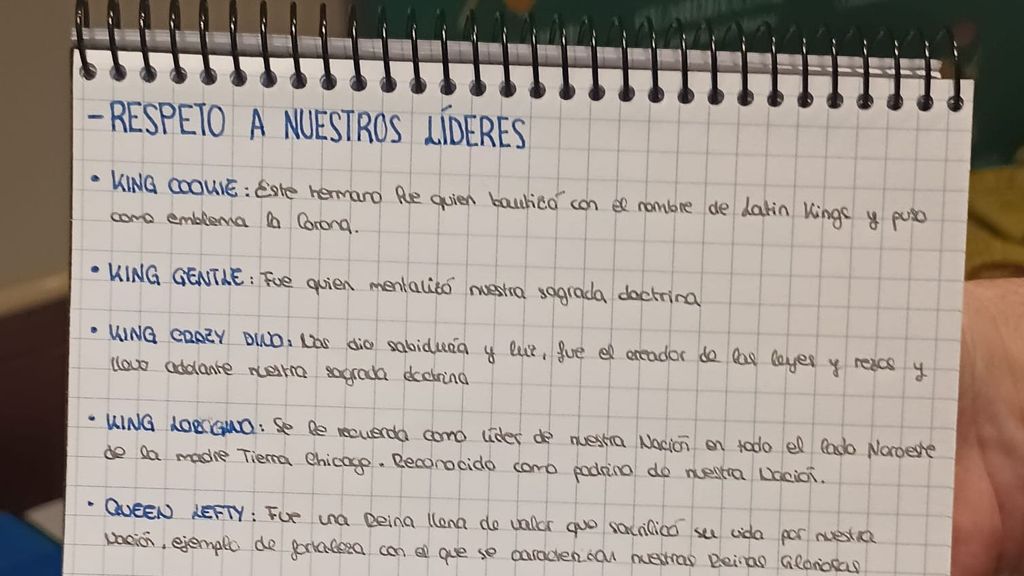 - RESPETO A NUESTROS LÍDERES
• KING COOKIE: Este hermano fue quien bautizó con el nombre de Latin Kings y puso
como emblema la Corona.
• KING GENTLE: Fue quien mentalizó nuestra sagrada doctrina
• KING CRAZY DINO: Nos dio sabiduría y luz, fue el creador de las leyes y rezos y
llevo adelante nuestra sagrada doctrina
• KING: Se le recuerda como líder de nuestra Nación en todo el lado Noroeste
de la madre Tierra Chicago. Reconocido como padrino de nuestra Nación.
• QUEEN LEFTY: Fue una Reina llena de valor que sacrificó su vida por nuestra
Nación, ejemplo de fortaleza con el que se caracterizan nuestras Reinas Gloriosas